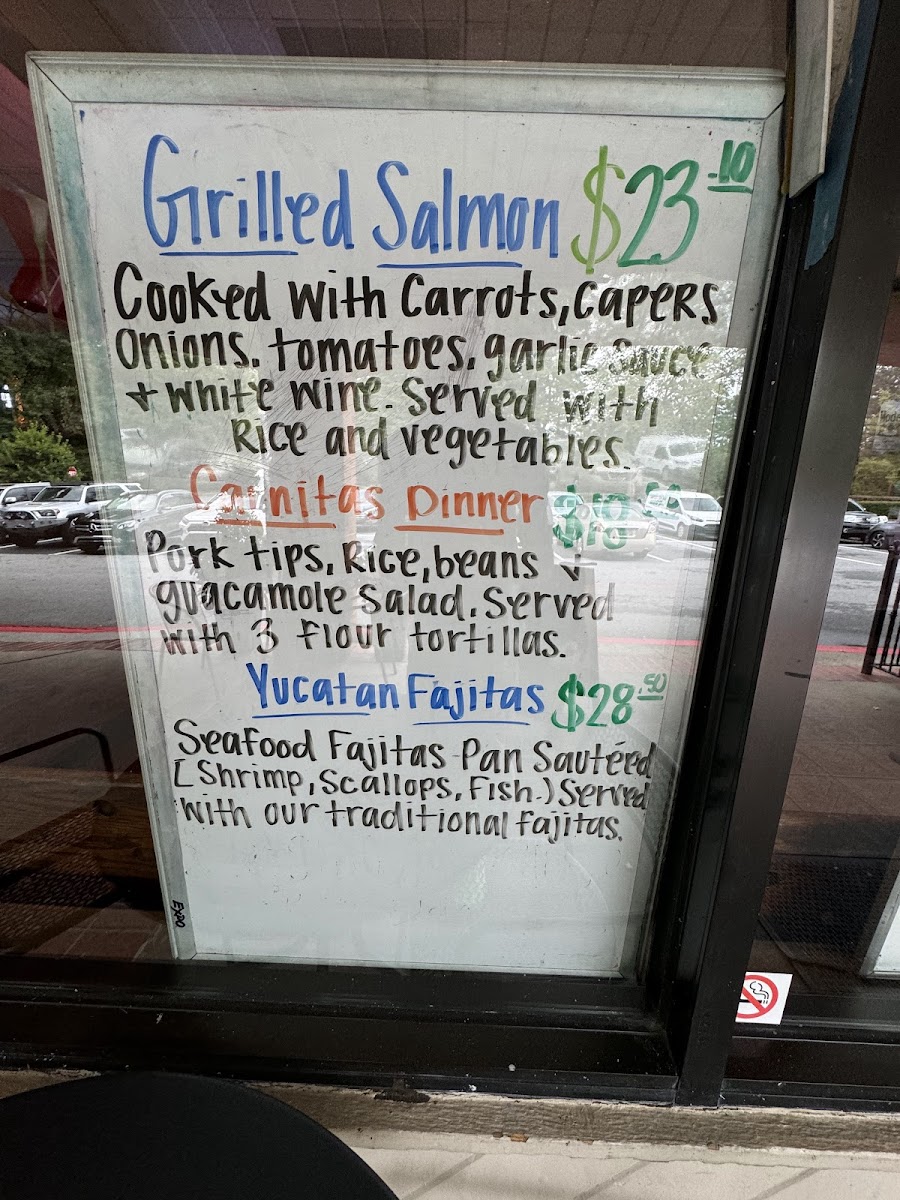 Grilled Salmon $23.10
Cooked with Carrots, capers
onions. tomatoes. garlic sauce
+ white wine. Served with
Rice and vegetables.
Carnitas Dinner
Pork tips, Rice, beans +
guacamole Salad. Served
with 3 flour tortillas.
Yucatan Fajitas $28.50
Seafood Fajitas Pan Sautéed
[Shrimp, Scallops, Fish.) Served
with our traditional fajitas.
EXPO